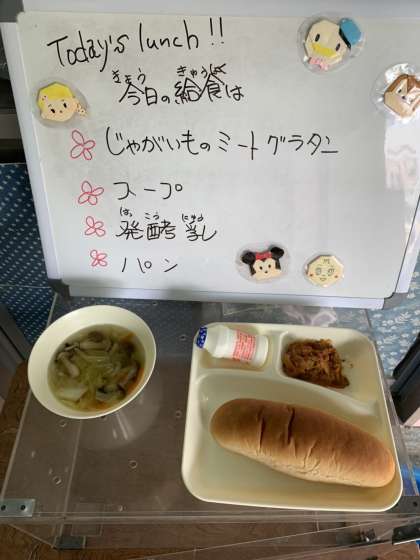 Today's lunch!!
きょう きゅうしょく
今日の給食は
じゃがいものミートグラタン
スープ
はっ こう にゅう
発酵乳
パン